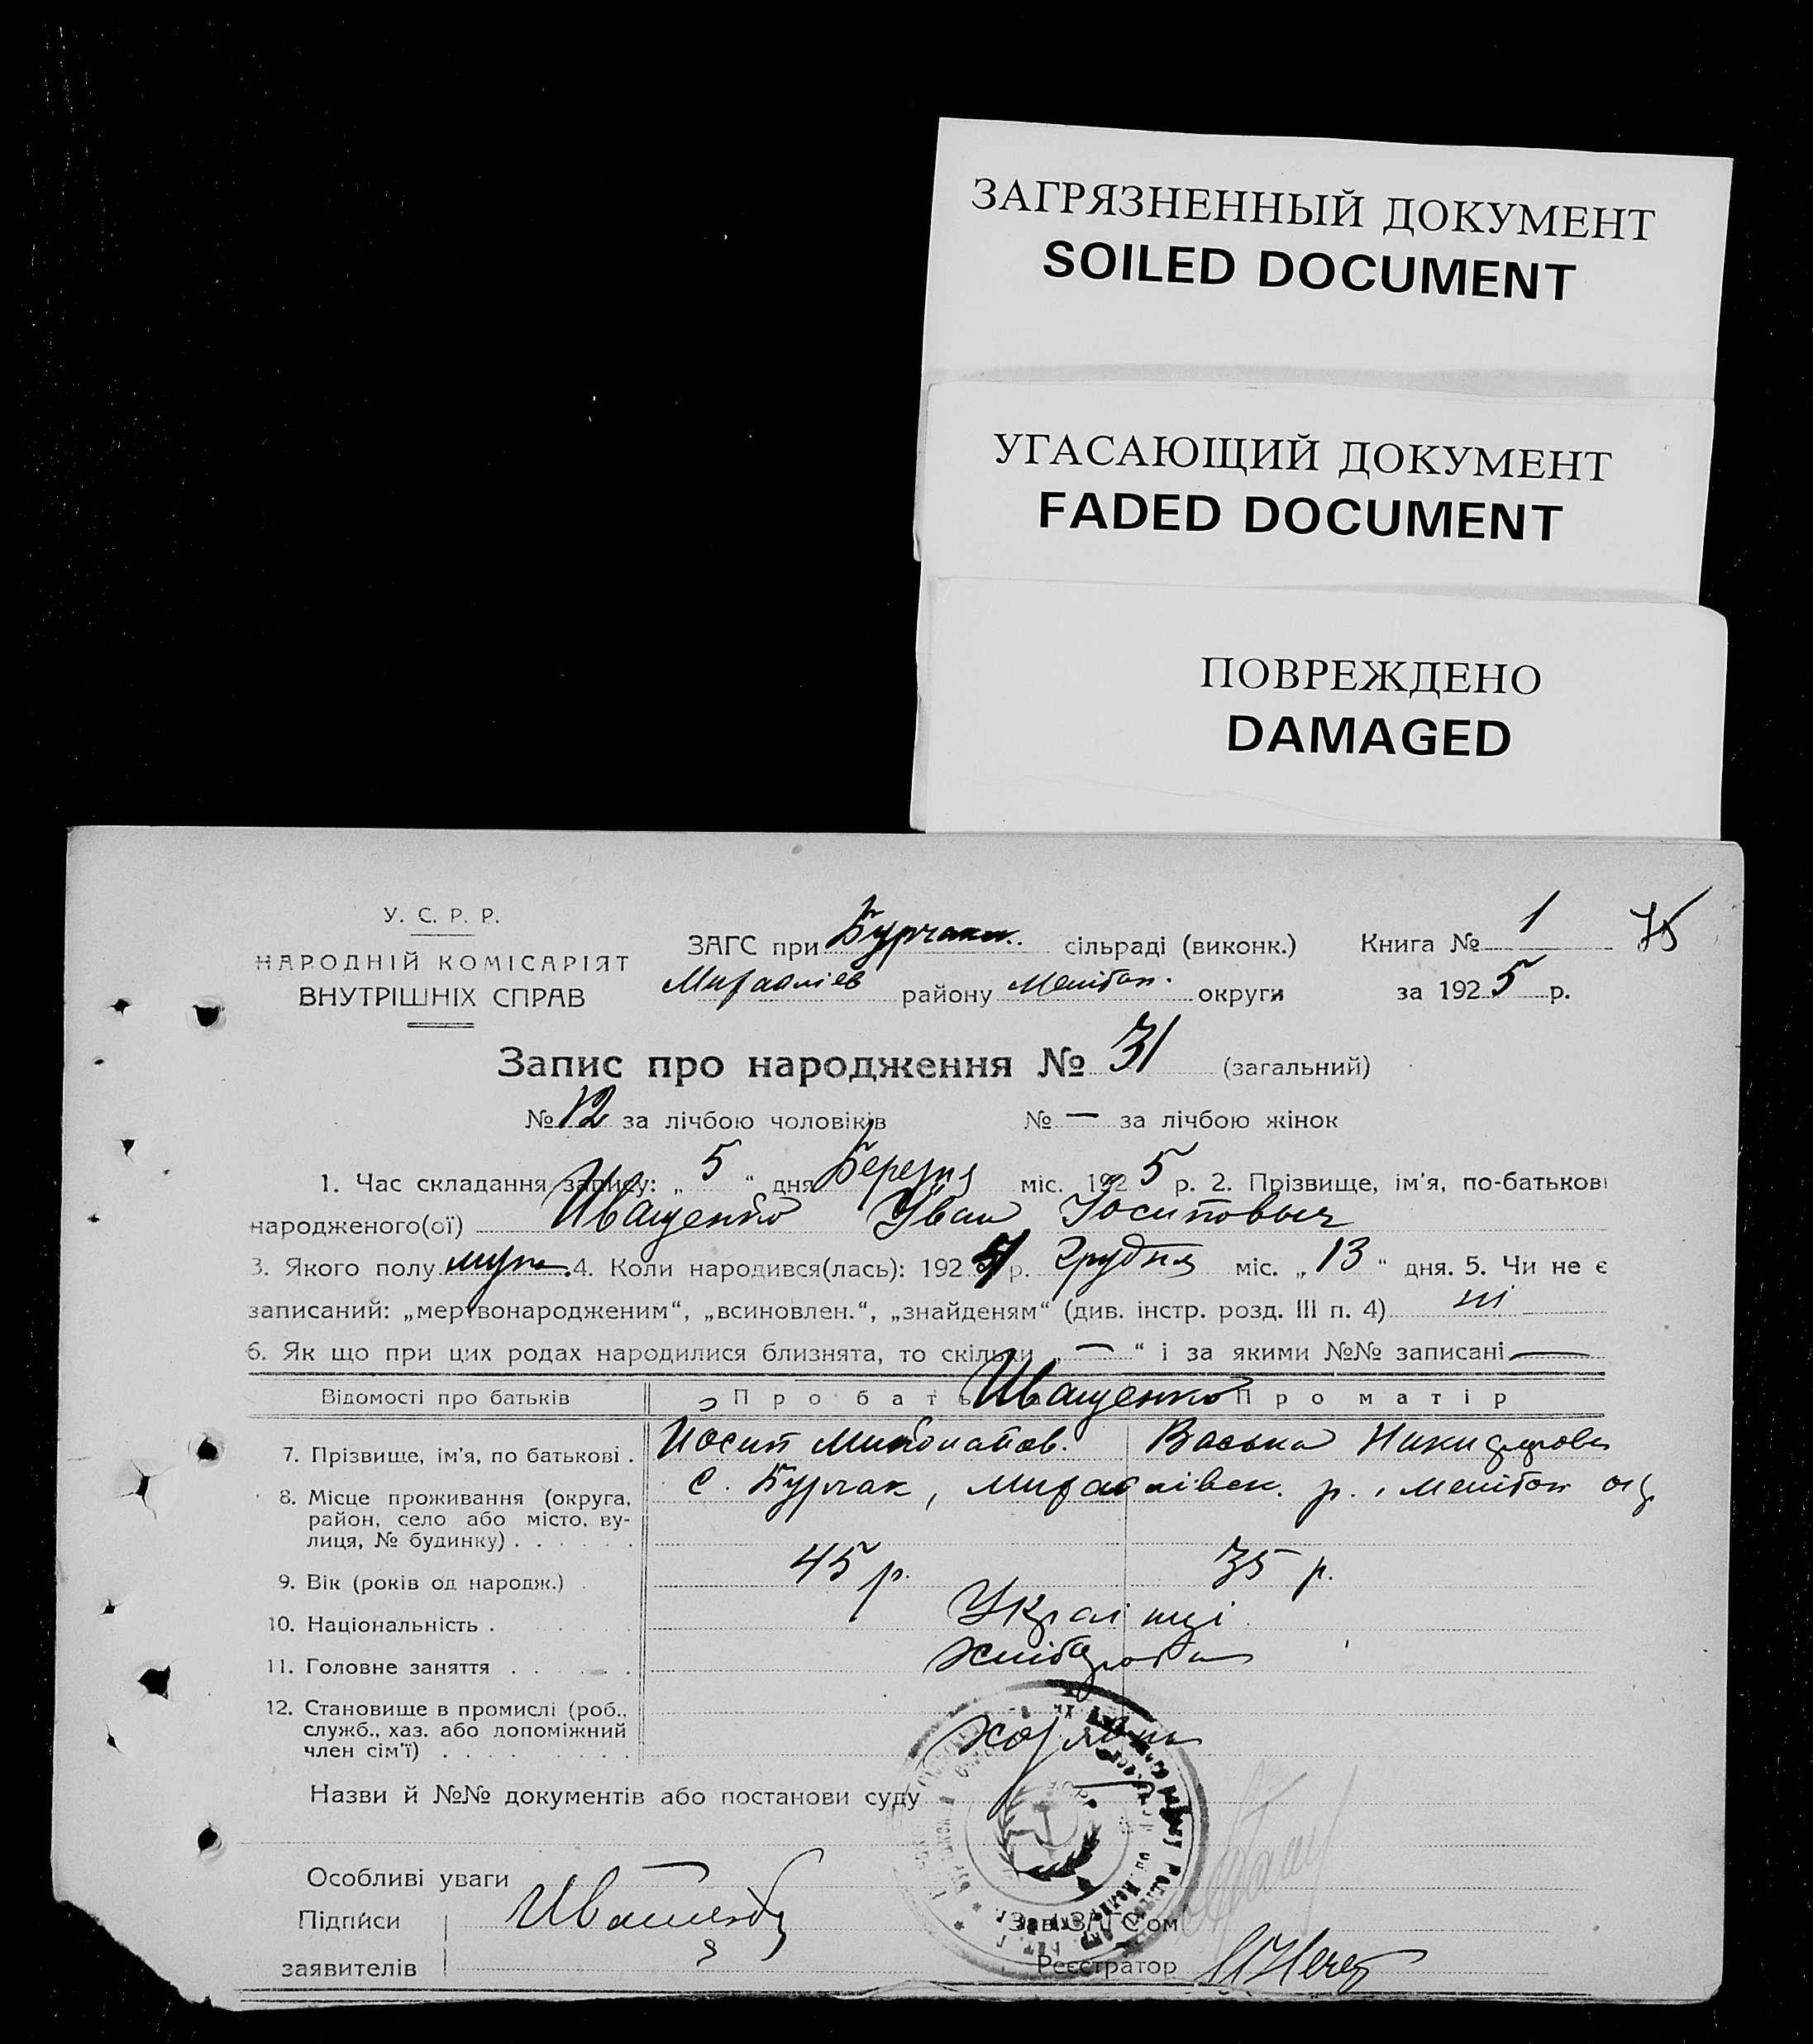 ЗАГРЯЗНЕННЫЙ ДОКУМЕНТ
SOILED DOCUMENT
УГАСАЮЩИЙ ДОКУМЕНТ
FADED DOCUMENT
ПОВРЕЖДЕНО
DAMAGED
У. С. Р. Р.
НАРОДНІЙ КОМІСАРІЯТ
ВНУТРІШНІХ СПРАВ
ЗАГС при сільраді (виконк.) Книга № 1 75
району Мелітоп. округи за 1925 р.
Запис про народження № 31 (загальний)
№ 12 за лічбою чоловіків № — за лічбою жінок
1. Час складання запису: „ 5 “ дня Березня міс. 1925 р. 2. Прізвище, ім'я, по-батькові
народженого(ої) Иващенко Иван Йосипович
3. Якого полу муж. 4. Коли народився(лась): 1924 р. Грудня міс. „ 13 “ дня. 5. Чи не є
записаний: „мертвонародженим“, „всиновлен.“, „знайденям“ (див. інстр. розд. III п. 4) ні
6. Як що при цих родах народилися близнята, то скільки „ — “ і за якими №№ записані —
Відомості про батьків Про бать Иващенко Про матір
7. Прізвище, ім'я, по батькові . Йосип Васька Никифоров
8. Місце проживання (округа, с. Бурчак, р., Мелітоп
район, село або місто, ву-
лиця, № будинку) . . . . . .
9. Вік (років од народж.) . 45 р. 35 р.
10. Національність . Українці
11. Головне заняття . . . . Хлібороби
12. Становище в промислі (роб.. хазяїни
служб., хаз. або допоміжний
член сім'ї) . . . . . . . . .
Назви й №№ документів або постанови суду
Особливі уваги
Підписи
заявителів
Зав. ЗАГС'ом
Реєстратор